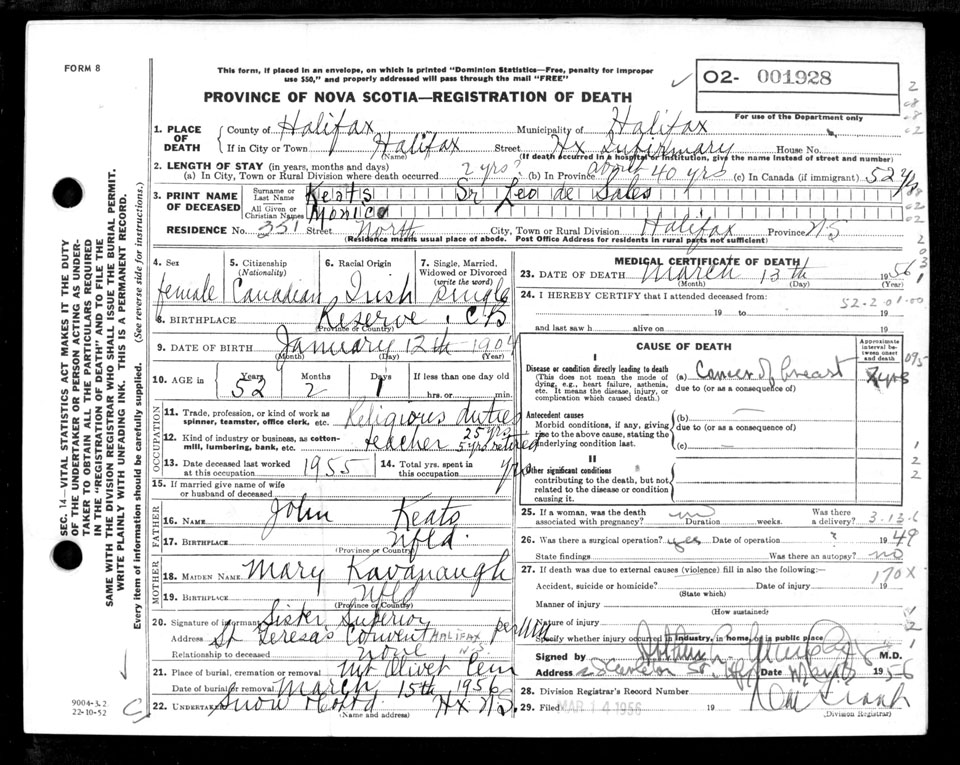 FORM 8
This form, if placed in an envelope, on which is printed "Dominion Statistics—Free, penalty for improper
use $50," and properly addressed will pass through the mail "FREE"
PROVINCE OF NOVA SCOTIA—REGISTRATION OF DEATH
O2- 001928
For use of the Department only
1. PLACE OF DEATH
County of Halifax Municipality of Halifax
If in City or Town Halifax Street Hx Infirmary House No.
(Name) (If death occurred in a hospital or institution, give the name instead of street and number)
2. LENGTH OF STAY (in years, months and days)
(a) In City, Town or Rural Division where death occurred 2 yrs? (b) In Province about 40 yrs (c) In Canada (if immigrant) 52 yrs
3. PRINT NAME OF DECEASED
Surname or Last Name Keats Sr Leo de Sales
All Given or Christian Names Monica
RESIDENCE No. 331 Street North City, Town or Rural Division Halifax Province NS
(Residence means usual place of abode. Post Office Address for residents in rural parts not sufficient)
4. Sex female
5. Citizenship (Nationality) Canadian
6. Racial Origin Irish
7. Single, Married, Widowed or Divorced (write the word) single
8. BIRTHPLACE Reserve, CB
(Province or Country)
9. DATE OF BIRTH January 12th 1904
(Month) (Day) (Year)
10. AGE in Years 52 Months 2 Days 1 If less than one day old
hrs. or min.
OCCUPATION
11. Trade, profession, or kind of work as spinner, teamster, office clerk, etc. Religious duties
12. Kind of industry or business, as cotton-mill, lumbering, bank, etc. teacher 25 yrs 5 yrs retired
13. Date deceased last worked at this occupation 1955
14. Total yrs. spent in this occupation yrs
15. If married give name of wife or husband of deceased
FATHER
16. NAME John Keats
17. BIRTHPLACE Nfld.
(Province or Country)
MOTHER
18. MAIDEN NAME Mary Kavanaugh
19. BIRTHPLACE Nfld
(Province or Country)
20. Signature of informant Sister Superior per
Address St Teresa's Convent HALIFAX N.S.
Relationship to deceased none
21. Place of burial, cremation or removal Mt Olivet Cem
Date of burial or removal March 15th 1956
22. UNDERTAKER Snow & Co Ltd Hx N.S.
(Name and address)
MEDICAL CERTIFICATE OF DEATH
23. DATE OF DEATH March 13th 1956
(Month) (Day)
24. I HEREBY CERTIFY that I attended deceased from:
52-2-01-00
19 to 19
and last saw h alive on 19
CAUSE OF DEATH
Approximate interval between onset and death
I
Disease or condition directly leading to death
(This does not mean the mode of dying, e.g., heart failure, asthenia, etc. It means the disease, injury, or complication which caused death.)
(a) Cancer of breast 7 yrs
due to (or as a consequence of)
Antecedent causes
Morbid conditions, if any, giving rise to the above cause, stating the underlying condition last.
(b) —
due to (or as a consequence of)
(c) —
II
Other significant conditions
contributing to the death, but not related to the disease or condition causing it.
25. If a woman, was the death associated with pregnancy? no Duration weeks. Was there a delivery? 3-13-6
26. Was there a surgical operation? yes Date of operation ? 1949
State findings Was there an autopsy? no
27. If death was due to external causes (violence) fill in also the following:—
170X
Accident, suicide or homicide? Date of injury 19
(State which)
Manner of injury
(How sustained)
Nature of injury
Specify whether injury occurred in industry, in home, or in public place
Signed by M.D.
Address Date 1956
28. Division Registrar's Record Number
29. Filed MAR 14 1956 19
(Division Registrar)
9004-3.2
22-10-52
SEC. 14—VITAL STATISTICS ACT MAKES IT THE DUTY
OF THE UNDERTAKER OR PERSON ACTING AS UNDER-
TAKER TO OBTAIN ALL THE PARTICULARS REQUIRED
IN THE "REGISTRATION OF DEATH" AND TO FILE THE
SAME WITH THE DIVISION REGISTRAR WHO SHALL ISSUE THE BURIAL PERMIT.
WRITE PLAINLY WITH UNFADING INK. THIS IS A PERMANENT RECORD.
Every item of information should be carefully supplied. (See reverse side for instructions.)